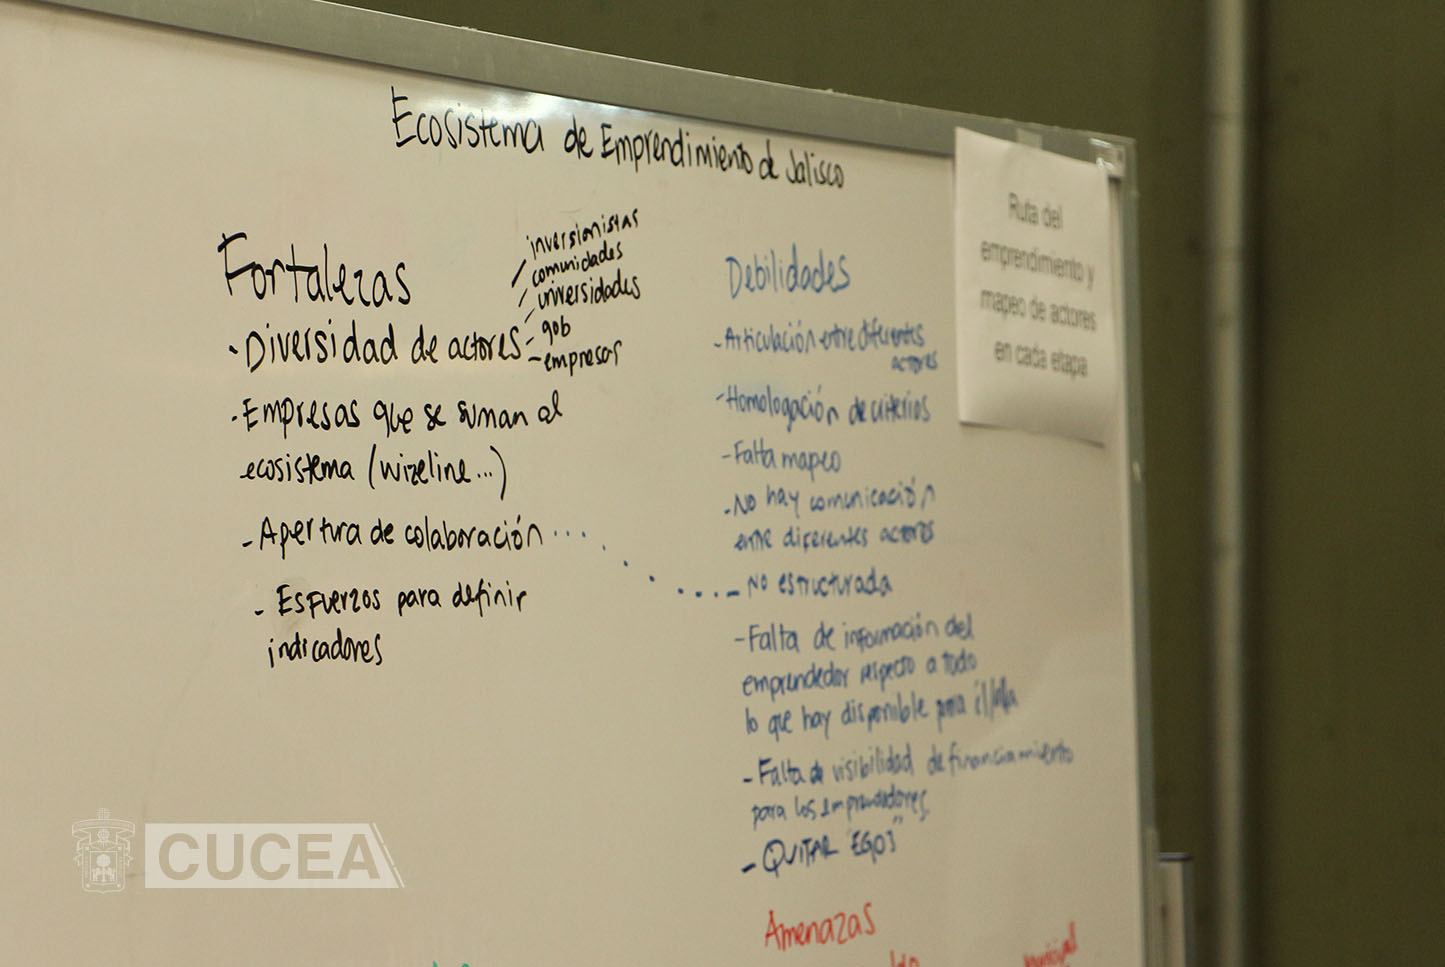 Ecosistema de Emprendimiento de Jalisco
Fortalezas
• Diversidad de actores
inversionistas
comunidades
universidades
- gob
- empresas
• Empresas que se suman al
ecosistema (wizeline...)
- Apertura de colaboración ...
- Esfuerzos para definir
indicadores
Debilidades
- Articulación entre diferentes
actores
- Homologación de criterios
- Falta mapeo
- No hay comunicación
entre diferentes actores
- No estructurada
- Falta de información del
emprendedor respecto a todo
lo que hay disponible para él/ella
- Falta de visibilidad de financiamiento
para los emprendedores
- QUITAR "EGOS"
Amenazas
Ruta del
emprendimiento y
mapeo de actores
en cada etapa
CUCEA